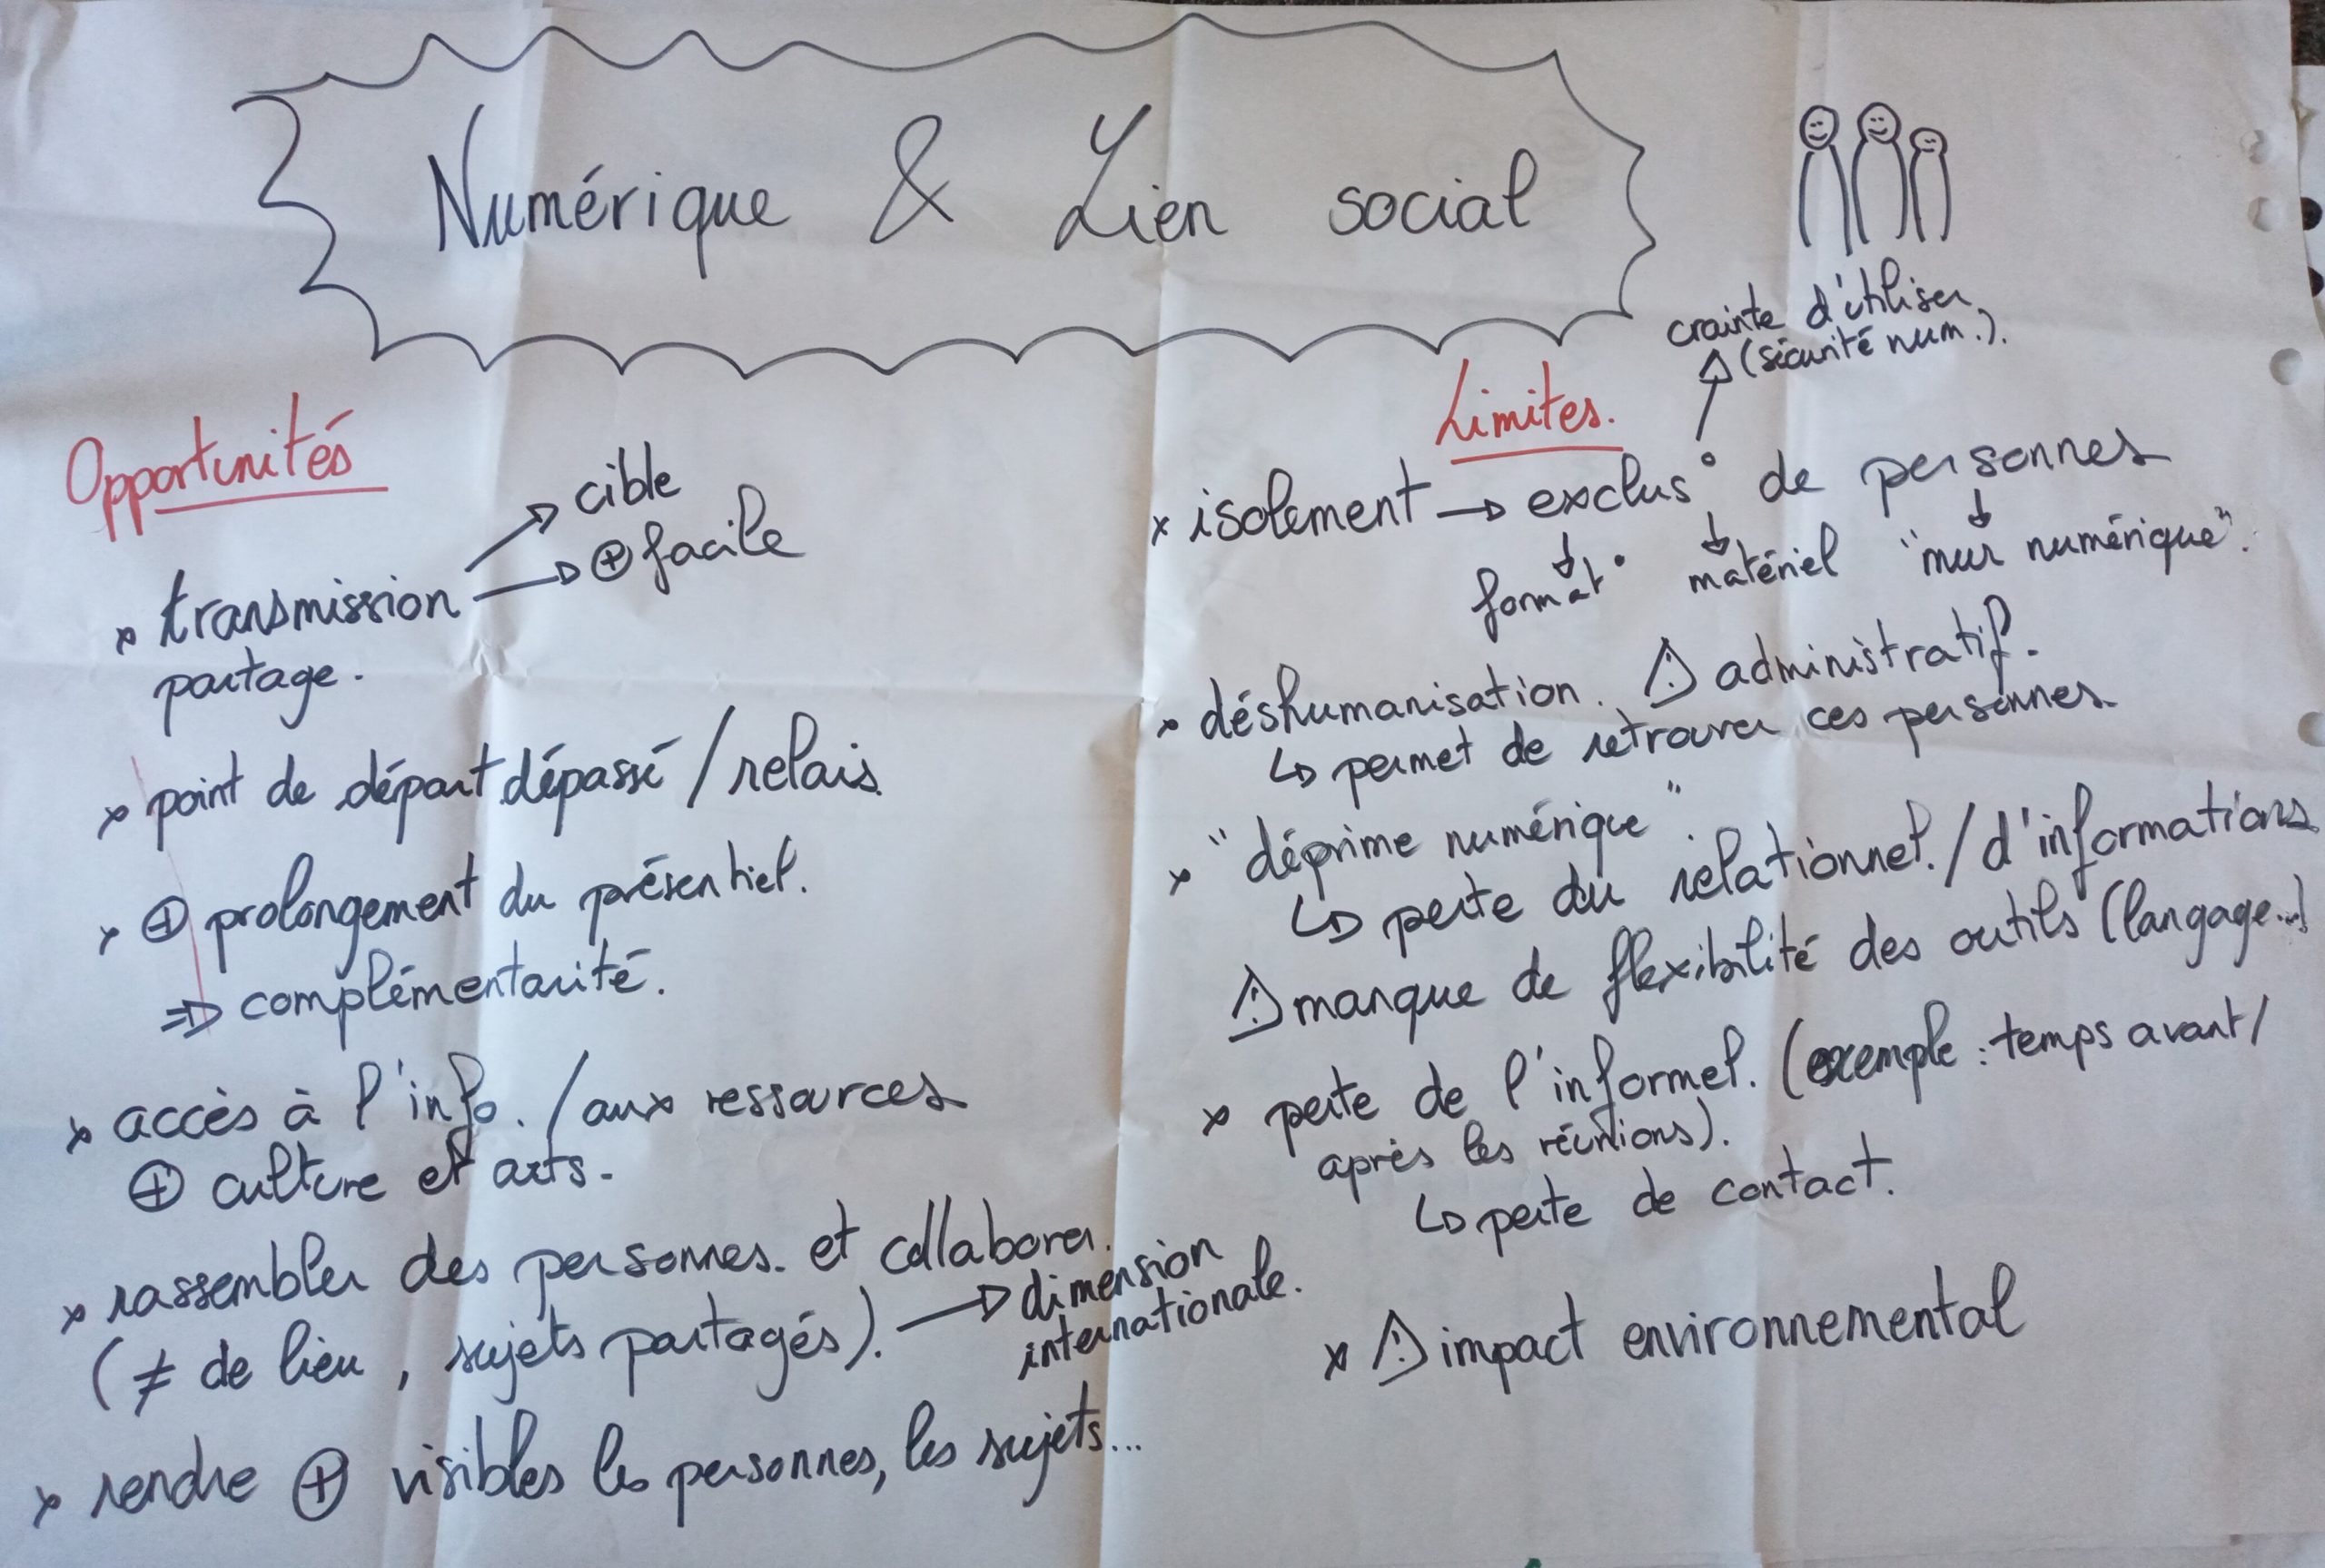 Numérique & Lien social
Opportunités
× transmission
→ cible
→ ⊕ facile
partage.
× point de départ dépassé / relais
× ⊕ prolongement du présentiel.
⇒ complémentarité.
× accès à l'info. / aux ressources
⊕ culture et arts.
× rassembler des personnes. et collaborer.
(≠ de lieu, sujets partagés). → dimension
internationale.
× rendre ⊕ visibles les personnes, les sujets...
Limites.
crainte d'utiliser
(sécurité num.).
× isolement → exclus° de personnes
format° matériel "mur numérique".
× déshumanisation. ⚠ administratif.
↳ permet de retrouver ces personnes
× "déprime numérique".
↳ perte du relationnel. / d'informations
⚠ manque de flexibilité des outils (langage...)
× perte de l'informel. (exemple : temps avant /
après les réunions).
↳ perte de contact.
× ⚠ impact environnemental